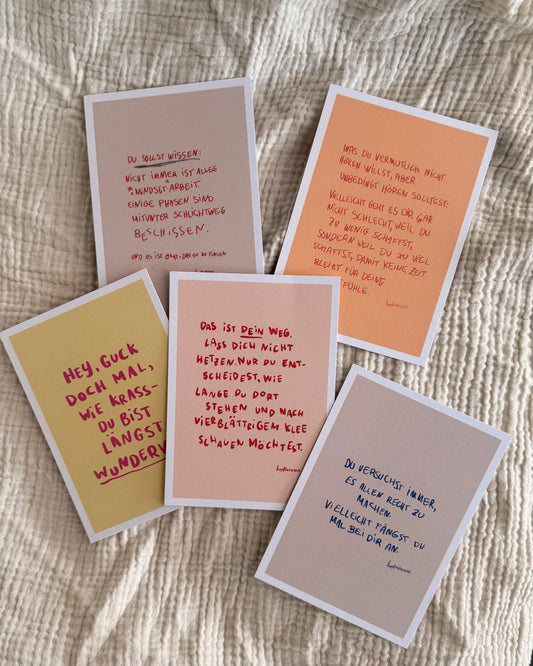 DU SOLLST WISSEN:
NICHT IMMER IST ALLES
*MINDSET-ARBEIT.
EINIGE PHASEN SIND
MITUNTER SCHLICHTWEG
BESCHISSEN.
UND ES IST OKAY, DAS SO ZU FÜHLEN
WAS DU VERMUTLICH NICHT
HÖREN WILLST, ABER
UNBEDINGT HÖREN SOLLTEST:
VIELLEICHT GEHT ES DIR GAR
NICHT SCHLECHT, WEIL DU
ZU WENIG SCHAFFST,
SONDERN WEIL DU ZU VIEL
SCHAFFST, DAMIT KEINE ZEIT
BLEIBT FÜR DEINE
GEFÜHLE.
HEY, GUCK
DOCH MAL,
WIE KRASS-
DU BIST
LÄNGST
WUNDERV
DAS IST DEIN WEG.
LASS DICH NICHT
HETZEN. NUR DU ENT-
SCHEIDEST, WIE
LANGE DU DORT
STEHEN UND NACH
VIERBLÄTTRIGEM KLEE
SCHAUEN MÖCHTEST.
DU VERSUCHST IMMER,
ES ALLEN RECHT ZU
MACHEN.
VIELLEICHT FÄNGST DU
MAL BEI DIR AN.